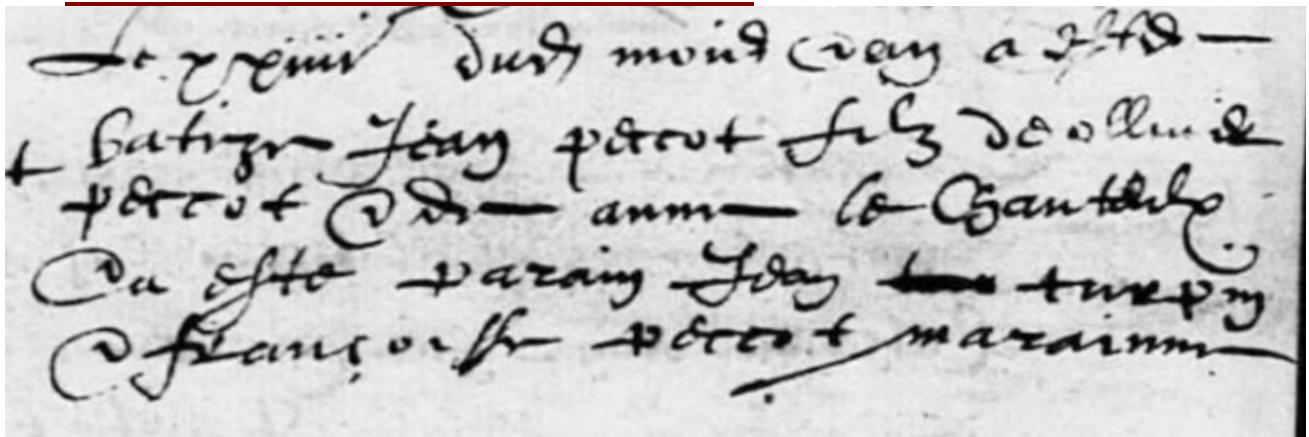 Le xxiiiie dud mois & an a este
batize Jean peccot filz de ollivier
peccot & de anne le Chanteulx
& a este parain Jean turpin
& françoisse peccot maraine